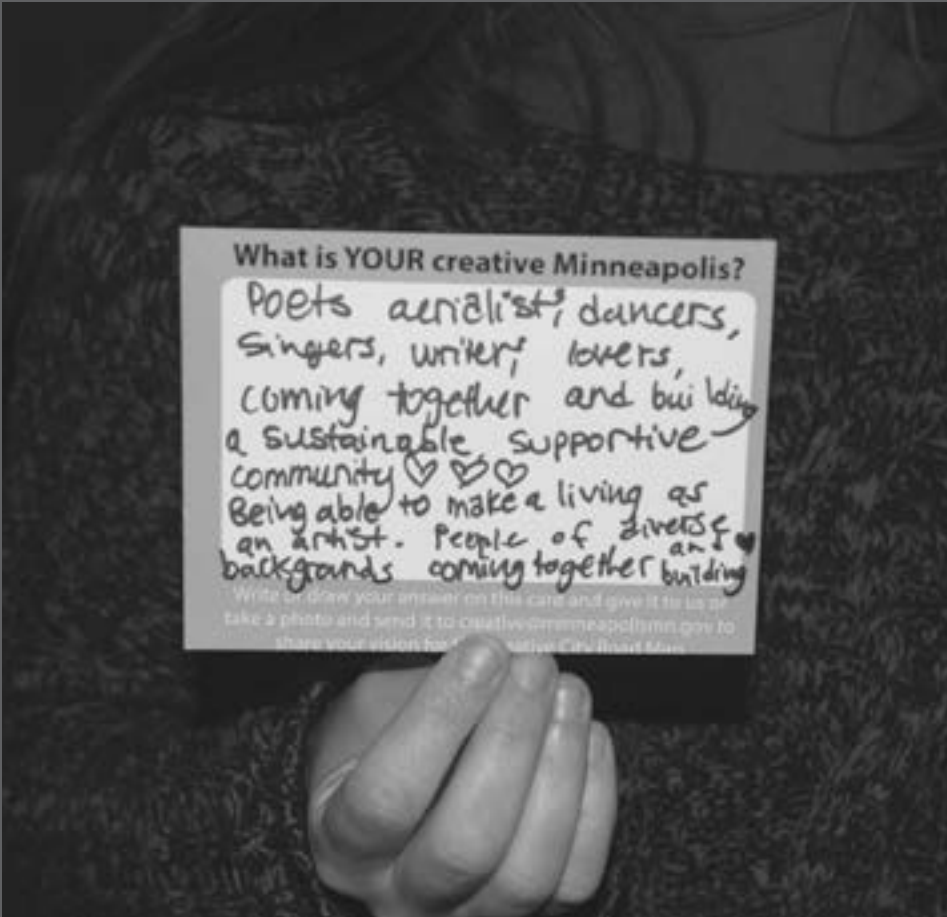 What is YOUR creative Minneapolis?
Poets aerialists, dancers,
Singers, writers, lovers,
coming together and building
a sustainable, supportive
community ♡ ♡ ♡
Being able to make a living as
an artist. People of diverse
backgrounds coming together and building ♥
Write or draw your answer on this card and give it to us or
take a photo and send it to creative@minneapolismn.gov to
share your vision for Creative City Road Map